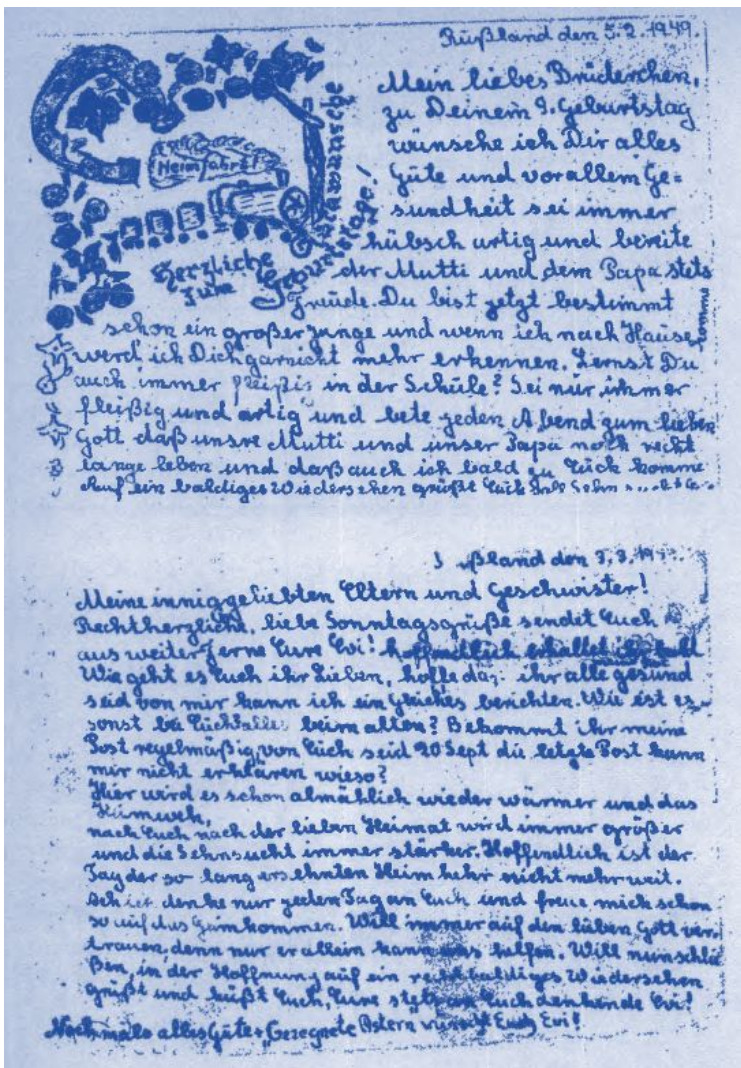 Rußland den 5.2.1949.
Heimfahrt!
Herzliche
Glückwünsche
zum
Geburtstage!
Mein liebes Brüderchen,
zu Deinem 9. Geburtstag
wünsche ich Dir alles
Gute und vorallem Ge=
sundheit sei immer
hübsch artig und bereite
der Mutti und dem Papa stets
Freude. Du bist jetzt bestimmt
schon ein großer Junge und wenn ich nach Hause komme
werd ich Dich garnicht mehr erkennen. Lernst Du
auch immer fleißig in der Schule? Sei nur immer
fleißig und artig und bete jeden Abend zum lieben
Gott daß unsre Mutti und unser Papa noch recht
lange leben und daß auch ich bald zu Euch komme
Auf ein baldiges Wiedersehen grüßt Euch
ußland den 3.3.19
Meine inniggeliebten Eltern und Geschwister!
Rechtherzliche, liebe Sonntagsgrüße sendet Euch
aus weiter Ferne Eure Evi! hoffendlich erhaltet ihr bald
Wie geht es Euch ihr Lieben, hoffe das ihr alle gesund
seid von mir kann ich ein Gleiches berichten. Wie ist es
sonst bei Euch alles beim alten? Bekommt ihr meine
Post regelmäßig, von Euch seid 20 Sept die letzte Post kann
mir nicht erklären wieso?
Hier wird es schon almählich wieder wärmer und das
Heimweh,
nach Euch nach der lieben Heimat wird immer größer
und die Sehnsucht immer stärker. Hoffendlich ist der
Tag der so lang ersehnten Heimkehr nicht mehr weit.
Ach ich denke nur jeden Tag an Euch und freue mich schon
so auf das Heimkommen. Will immer auf den lieben Gott ver
trauen, denn nur er allein kann uns helfen. Will nun schlie
ßen, in der Hoffnung auf ein recht baldiges Wiedersehen
grüßt und küßt Euch, Eure stets an Euch denkende Evi!
Nochmals alles Gute + Gesegnete Ostern wünscht Euch Evi!